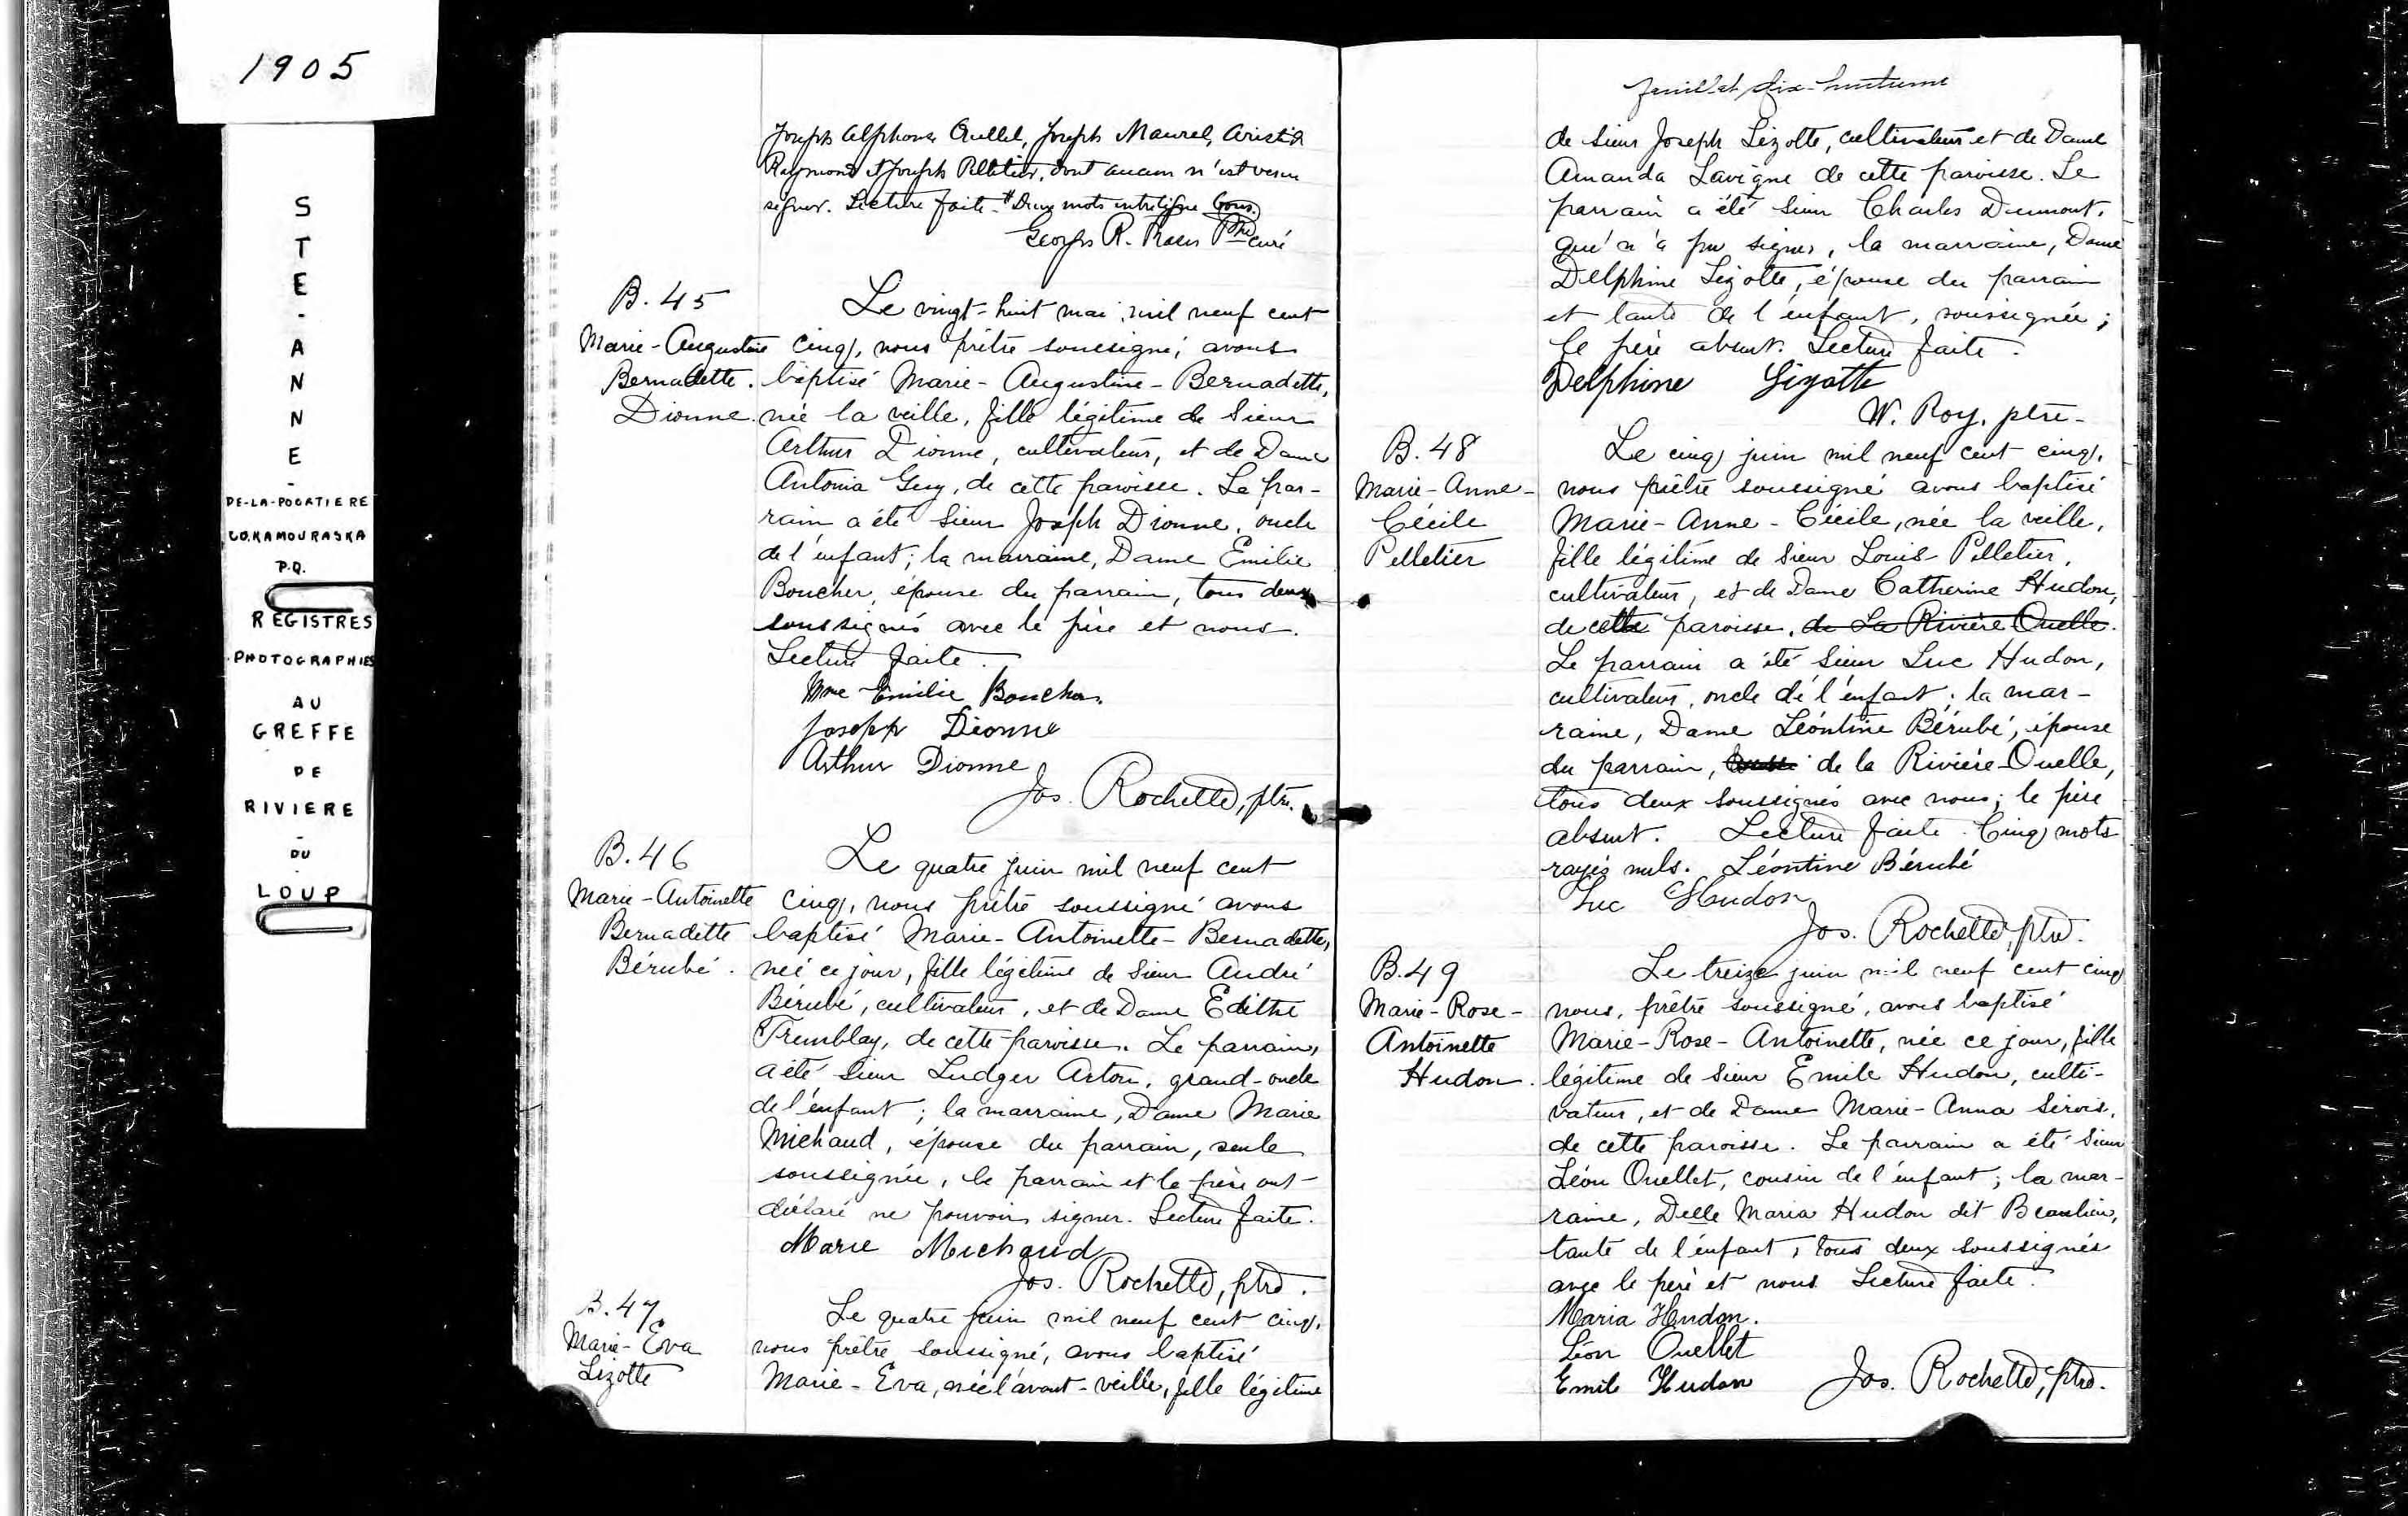 1905
S
T
E
-
A
N
N
E
-
DE-LA-POCATIERE
CO.KAMOURASKA
P.Q.
REGISTRES
PHOTOGRAPHIES
AU
GREFFE
DE
RIVIERE
-
DU
-
LOUP
Joseph Alphonse Ouellet, Joseph Maurel, Aristide
Raymond et Joseph Pelletier, dont aucun n'est venu
signer. Lecture faite. Deux mots interligne bons.
Georges R. Ptre curé
B.45
Marie-Augustine
Bernadette.
Dionne.
Le vingt-huit mai, mil neuf cent
cinq, nous prêtre soussigné, avons
baptisé Marie-Augustine-Bernadette,
née la veille, fille légitime de Sieur
Arthur Dionne, cultivateur, et de Dame
Antonia Guy, de cette paroisse. Le par-
rain a été Sieur Joseph Dionne, oncle
de l'enfant; la marraine, Dame Emilie
Boucher, épouse du parrain, tous deux
soussignés avec le père et nous.
Lecture faite.
Mme Emilie Boucher
Joseph Dionne
Arthur Dionne
Jos. Rochette, ptre.
B.46
Marie-Antoinette
Bernadette
Bérubé.
Le quatre juin mil neuf cent
cinq, nous prêtre soussigné avons
baptisé Marie-Antoinette-Bernadette,
née ce jour, fille légitime de Sieur André
Bérubé, cultivateur, et de Dame Edithe
Tremblay, de cette paroisse. Le parrain,
a été Sieur Ludger Acton, grand-oncle
de l'enfant; la marraine, Dame Marie
Michaud, épouse du parrain, seule
soussignée, le parrain et le père ont
déclaré ne pouvoir signer. Lecture faite.
Marie Michaud
Jos. Rochette, ptre.
B.47
Marie-Eva
Lizotte
Le quatre juin mil neuf cent cinq,
nous prêtre soussigné, avons baptisé
Marie-Eva, née l'avant-veille, fille légitime
feuillet dix-huitième
de Sieur Joseph Lizotte, cultivateur et de Dame
Amanda Lavigne de cette paroisse. Le
parrain a été Sieur Charles Dumont,
qui n'a pu signer, la marraine, Dame
Delphine Lizotte, épouse du parrain
et tante de l'enfant, soussignée;
le père absent. Lecture faite.
Delphine Lizotte
W. Roy, ptre-
B.48
Marie-Anne-
Cécile
Pelletier
Le cinq juin mil neuf cent cinq,
nous prêtre soussigné avons baptisé
Marie-Anne-Cécile, née la veille,
fille légitime de Sieur Louis Pelletier,
cultivateur, et de Dame Catherine Hudon,
de cette paroisse, de La Rivière Ouelle.
Le parrain a été Sieur Luc Hudon,
cultivateur, oncle de l'enfant; la mar-
raine, Dame Léontine Bérubé, épouse
du parrain, de la Rivière-Ouelle,
tous deux soussignés avec nous; le père
absent. Lecture faite. Cinq mots
rayés nuls. Léontine Bérubé
Luc Hudon
Jos. Rochette, ptre.
B.49
Marie-Rose-
Antoinette
Hudon.
Le treize juin mil neuf cent cinq
nous, prêtre soussigné, avons baptisé
Marie-Rose-Antoinette, née ce jour, fille
légitime de Sieur Emile Hudon, culti-
vateur, et de Dame Marie-Anna Sirois,
de cette paroisse. Le parrain a été Sieur
Léon Ouellet, cousin de l'enfant; la mar-
raine, Delle Maria Hudon dit Beaulieu,
tante de l'enfant, tous deux soussignés
avec le père et nous. Lecture faite.
Maria Hudon.
Léon Ouellet
Emile Hudon Jos. Rochette, ptre.